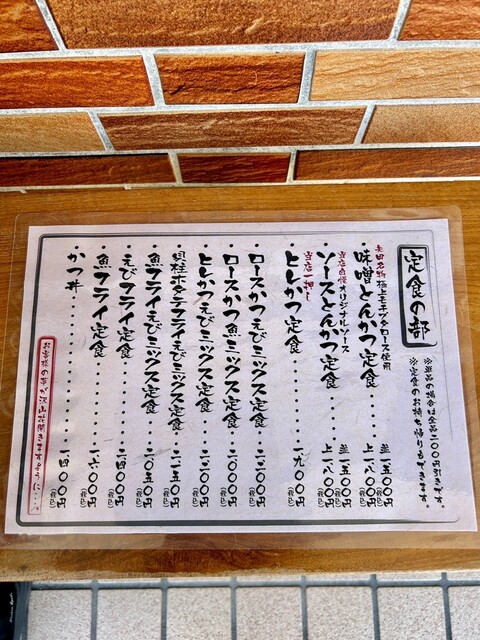 定食の部
※単品の場合は全品二〇〇円引きです。
※定食のお持ち帰りもできます。
矢田名物 極上モチブタロース使用
・味噌とんかつ定食・・・・並一五〇〇円(税込)
上一八〇〇円(税込)
当店自慢オリジナルソース
・ソースとんかつ定食・・・・並一五〇〇円(税込)
上一八〇〇円(税込)
当店一押し
・ヒレかつ定食・・・・・・・・一九〇〇円(税込)
・ロースかつえびミックス定食・・二一〇〇円(税込)
・ロースかつ魚ミックス定食・・・二〇〇〇円(税込)
・ヒレかつえびミックス定食・・・二二〇〇円(税込)
・貝柱ホタテフライえびミックス定食・二一五〇円(税込)
・魚フライえびミックス定食・・・二〇五〇円(税込)
・えびフライ定食・・・・・・・・二四〇〇円(税込)
・魚フライ定食・・・・・・・・・一六〇〇円(税込)
・かつ丼・・・・・・・・・・・・一四〇〇円(税込)
お客様の夢が沢山花開きますように…。